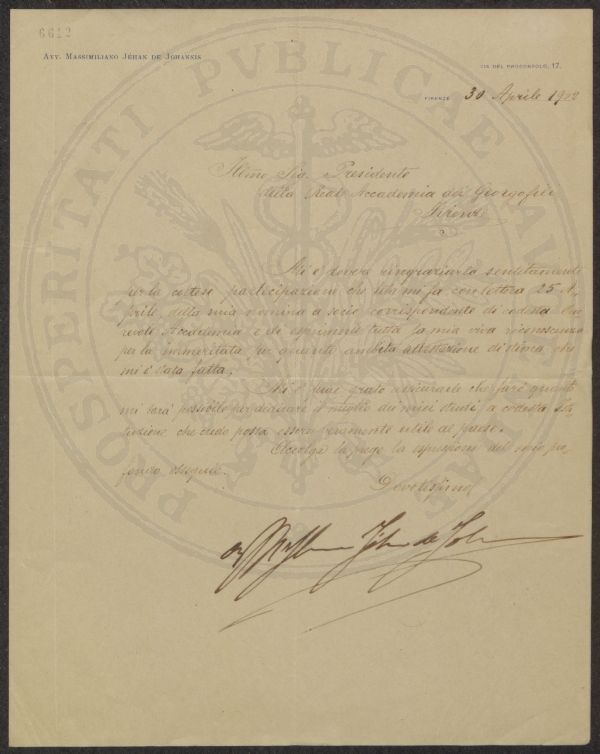 6612
Avv. Massimiliano Jéhan de Johannis
VIA DEL PROCONSOLO, 17.
FIRENZE 30 Aprile 1902
PROSPERITATI PVBLICAE AVGENDAE
Illmo Sig. Presidente
della Real Accademia dei Georgofili
Firenze
Mi è cosa ringraziarla sentitamente
per la cortese partecipazione che Ella mi fa con lettera 25 A-
prile, della mia nomina a socio corrispondente di codesta Ono
revole Accademia e di esprimerle tutta la mia viva riconoscenza
per la immeritata per quanto ambita attestazione di stima che
mi è stata fatta.
Mi è pure grato assicurarle che farò quanto
mi sarà possibile per dedicare il meglio dei miei studi, a codesta Isti
tuzione che credo possa essere veramente utile al paese.
Accolga la prego la espressione del mio pro
fondo ossequio.
Devotissimo